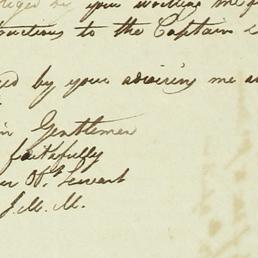 by your writing me
uctions to the Captain
ed by your advising me
Gentlemen
faithfully
Ob.t Servant
J. M. M.